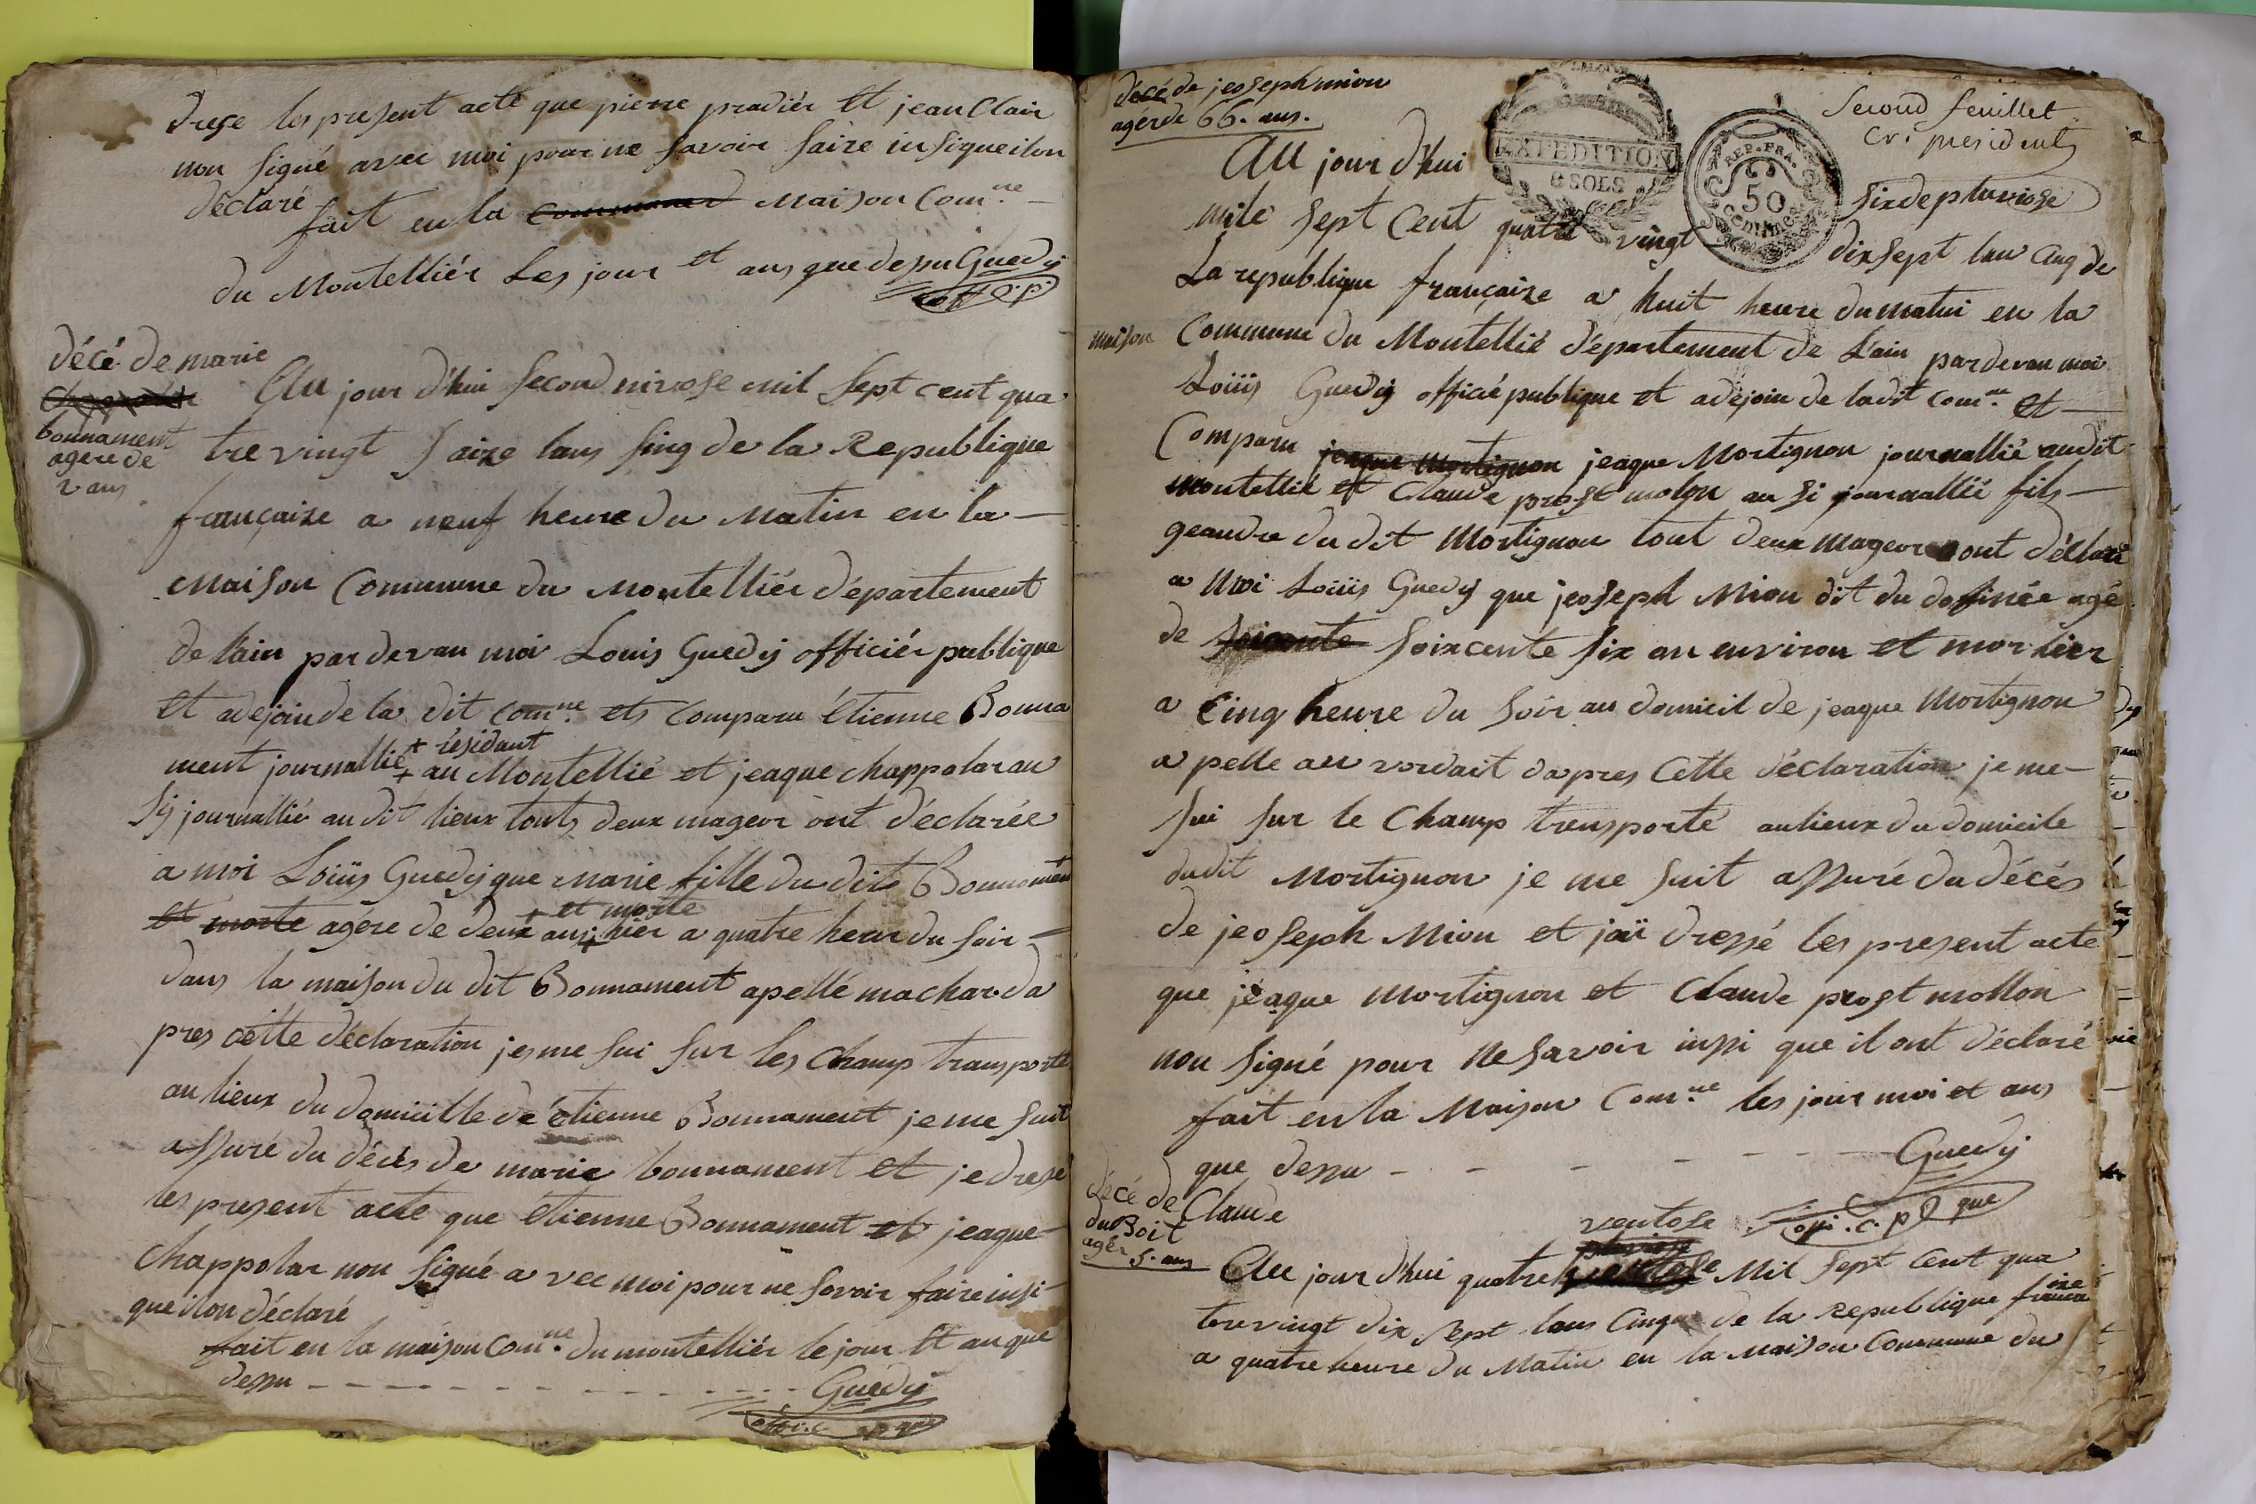 drese les present acte que pierre pradiér Et jean Clair
non signé avec moi pour ne savoir faire insi queilon
déclaré
fait en la Maison Com.ne
du Montelliér Les jour et ans que depu Guedij
off p.
décé de marie
bonnament
agere de
2 ans
Au jour d'hui second nivose mil sept cent qua
tre vingt saize lans sing de la Republique
françaize a neuf heure du Matin en la
Maison Commune du Montelliér département
de lain par devan moi Louis Guedij officiér publique
et adejoin de la dit com.ne ets comparu étienne Bonna
ment journallié + résidant
+ au Montellié et jeaque chappolar au
sy journallié au dit lieux touts deux mageor ont déclarée
a moi Loüis Guedij que Marie fille du dits Bonnament
et morte agére de deux ans + et morte
+ hier a quatre heur du soir
dans la maison du dit Bonnament apellé machar da
pres cette déclaration jes me sui sur les champ transporté
au lieux du domicille de étienne Bonnament je me suit
assuré du décés de marie bonnament et je drese
les present acte que étienne Bonnament et jeaque
chappolar non signé avec moi pour ne savoir faire insi
que ilon déclaré
fait en la maison Com.ne du montelliér le jour Et an que
depu Guedij
offi. c
décé de jeoseph mion
agér de 66. ans.
EXPEDITION
6 SOLS
REP. FRA.
50
CENTIMES
Second feuillet
Cr. president
Au jour d'hui six de pluviose
mile sept cent quatre vingt dix sept lan cinq de
La republique françaize a huit heure du matin en la
maison Commune du Montellié département de Lain par devan moi
Loüis Guedij officié publique et adejoin de ladit com.ne et
Comparu jeaque Mortignon jeaque Mortignon journallié audit
montellié et Claude prost molon ausi journallié fils
geandre du dit Mortignon tout deux mageor ont déclaré
a Moi Loüis Guedij que jeoseph Mion dit du dofinée agé
de soixante soixcente six an environ et mor hier
a Cinq heure du soir au domicil de jeaque Mortignon
apelle au vordait dapres cette déclaration je me
sui sur le champ trensporté au lieux du domicile
dudit Mortignon je me suit assuré du décés
de jeoseph Mion et jaï dressé les present acte
que jeaque Mortignon et Claude prost mollon
non signé pour ne savoir inssi que il ont déclaré
fait en la Maison Com.ne les jour moi et ans
que dessu Guedij
offi. c. p que
décé de Claude
du Boit
agér 5. ans
ventose
Au jour d'hui quatre Mil sept cent qua
tre vingt dix sept lans Cinq de la Republique francaize
a quatre heure du Matin en la Maison Commune du